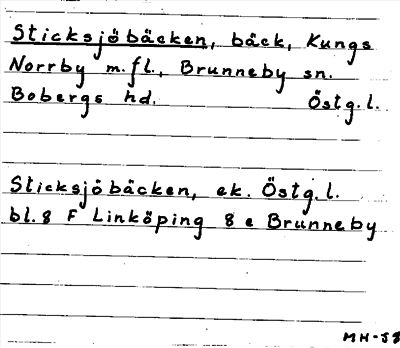 Sticksjöbäcken, bäck, Kungs
Norrby m.fl., Brunneby sn.
Bobergs hd. Östg.l.
Sticksjöbäcken, ek. Östg.l.
bl.8 F Linköping 8 e Brunneby
MH-58